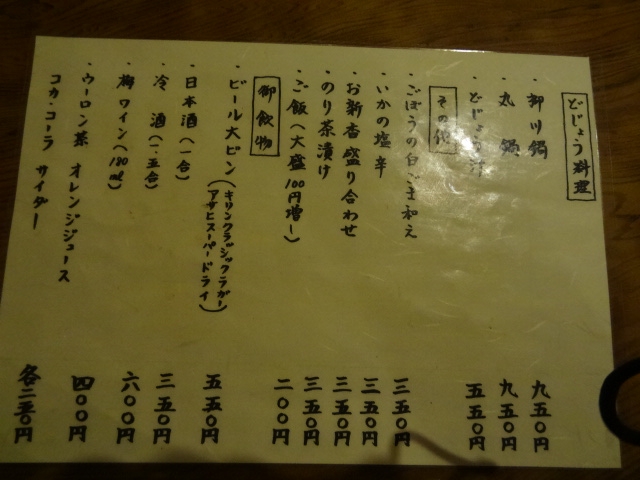 どじょう料理
・柳川鍋 九五〇円
・丸鍋 九五〇円
・どじょう汁 五五〇円
その他
・ごぼうの白ごま和え 三五〇円
・いかの塩辛 三五〇円
・お新香盛り合わせ 三五〇円
・のり茶漬け 三五〇円
・ご飯(大盛100円増し) 二〇〇円
御飲物
・ビール大ビン(キリンクラシックラガー
アサヒスーパードライ) 五五〇円
・日本酒(一合) 三五〇円
・冷酒(一.五合) 六〇〇円
・梅ワイン(180ml) 四〇〇円
・ウーロン茶 オレンジジュース
コカ・コーラ サイダー 各二五〇円